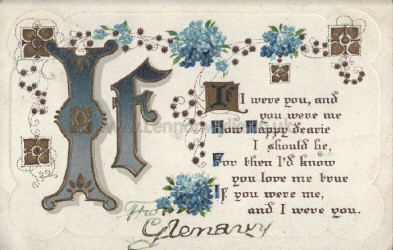 If
If I were you, and
you were me
How Happy dearie
I should be,
For then I'd know
you love me true
If you were me,
and I were you.
From
Glenavy